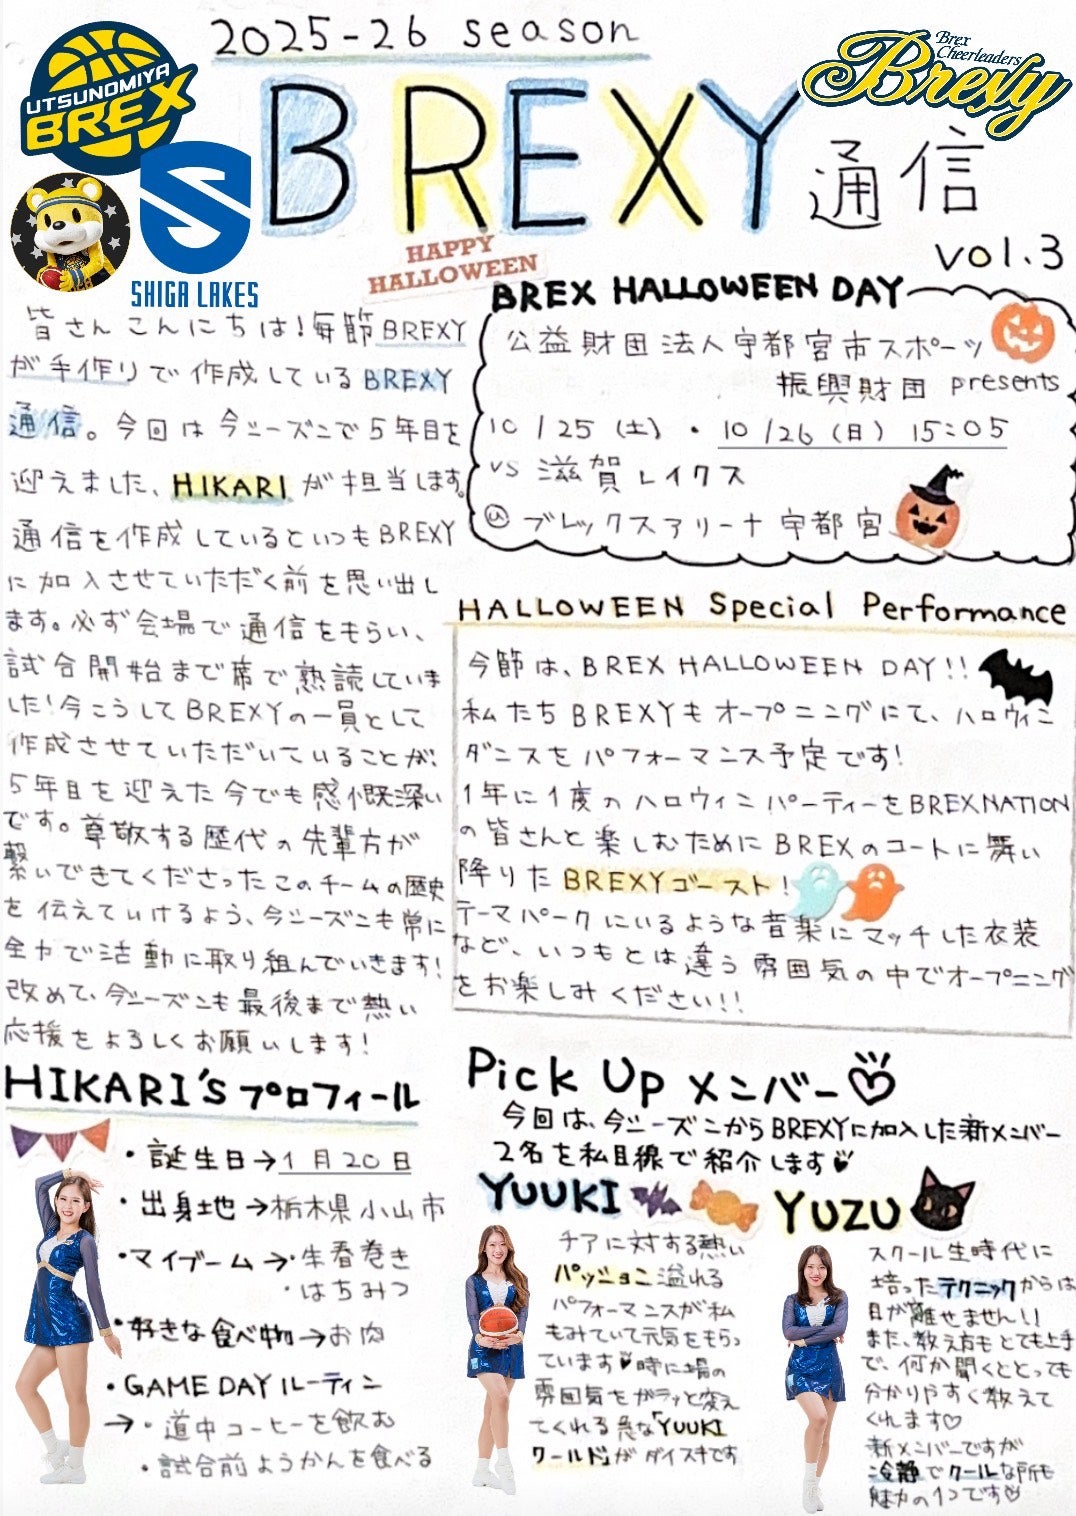 2025-26 season
UTSUNOMIYA
BREX
Brex
Cheerleaders
Brexy
BREXY通信
vol.3
SHIGA LAKES
HAPPY
HALLOWEEN
皆さんこんにちは!毎節BREXY
が手作りで作成しているBREXY
通信。今回は今シーズンで5年目を
迎えました、HIKARIが担当します。
通信を作成しているといつもBREXY
に加入させていただく前を思い出し
ます。必ず会場で通信をもらい、
試合開始まで席で熟読していま
した!今こうしてBREXYの一員として
作成させていただいていることが、
5年目を迎えた今でも感慨深い
です。尊敬する歴代の先輩方が
繋いできてくださったこのチームの歴史
を伝えていけるよう、今シーズンも常に
全力で活動に取り組んでいきます!
改めて、今シーズンも最後まで熱い
応援をよろしくお願いします!
BREX HALLOWEEN DAY
公益財団法人宇都宮市スポーツ
振興財団 presents
10/25(土)・10/26(日) 15:05
vs 滋賀レイクス
@ブレックスアリーナ宇都宮
HALLOWEEN Special Performance
今節は、BREX HALLOWEEN DAY!!
私たちBREXYもオープニングにて、ハロウィン
ダンスをパフォーマンス予定です!
1年に1度のハロウィンパーティーをBREXNATION
の皆さんと楽しむためにBREXのコートに舞い
降りたBREXYゴースト!
テーマパークにいるような音楽にマッチした衣装
など、いつもとは違う雰囲気の中でオープニング
をお楽しみください!!
HIKARI'sプロフィール
・誕生日→1月20日
・出身地→栃木県小山市
・マイブーム→・生春巻き
・はちみつ
・好きな食べ物→お肉
・GAME DAYルーティン
→・道中コーヒーを飲む
・試合前ようかんを食べる
Pick Up メンバー♡
今回は、今シーズンからBREXYに加入した新メンバー
2名を私目線で紹介します♥
YUUKI
チアに対する熱い
パッション溢れる
パフォーマンスが私
もみていて元気をもらっ
ています♥時に場の
雰囲気をガラッと変え
てくれる急な「YUUKI
ワールド」がダイスキです
YUZU
スクール生時代に
培ったテクニックからは
目が離せません!!
また、教え方もとても上手
で、何か聞くととっても
分かりやすく教えて
くれます♡
新メンバーですが
冷静でクールな所も
魅力の1つです♡